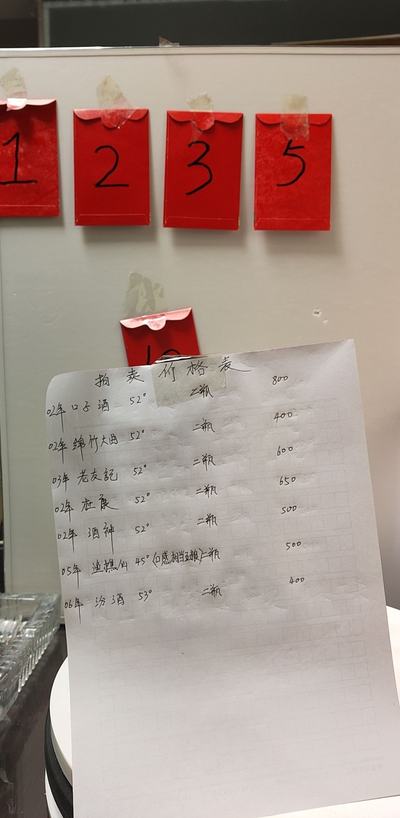 1 2 3 5
10
拍卖价格表
02年 口子酒 52° 二瓶 800
02年 绵竹大曲 52° 二瓶 400
03年 老友記 52° 二瓶 600
02年 杜康 52° 二瓶 650
02年 酒神 52° 二瓶 500
05年 45° (口感相当五粮) 二瓶 500
06年 汾酒 53° 二瓶 400